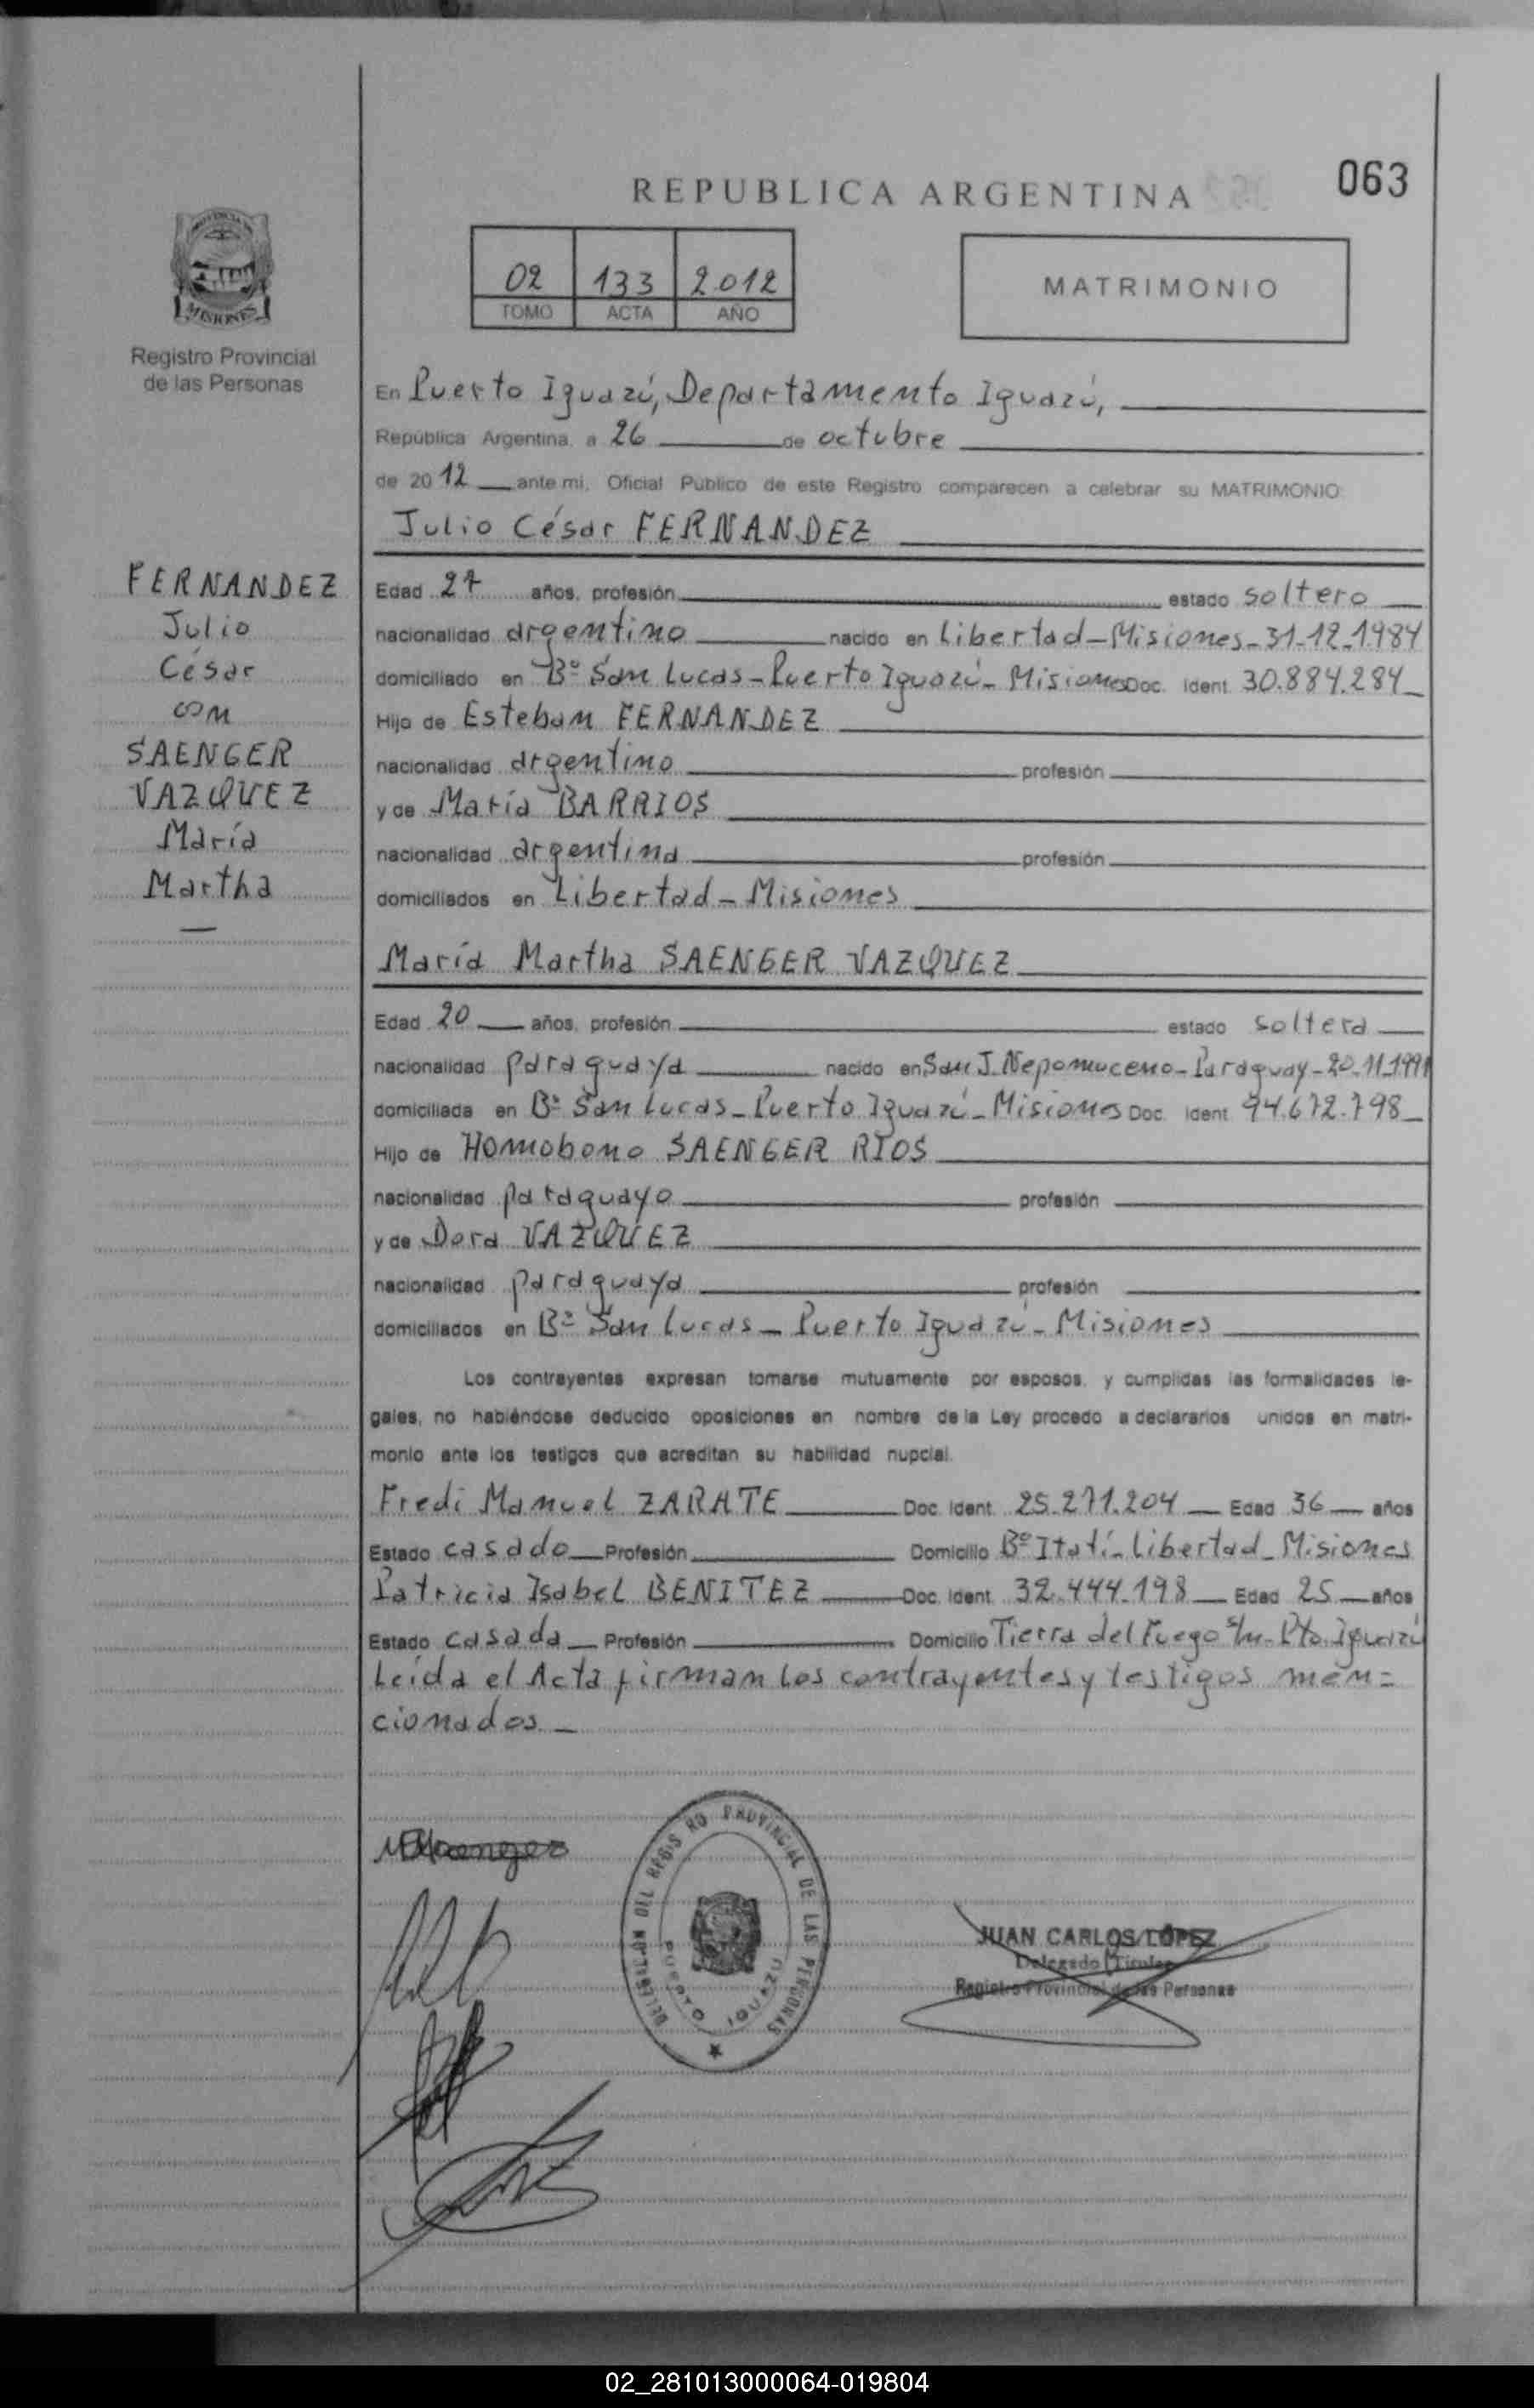 063
REPUBLICA ARGENTINA
MISIONES
Registro Provincial
de las Personas
02 133 2012
TOMO ACTA AÑO
MATRIMONIO
En Puerto Iguazú, Departamento Iguazú,
República Argentina, a 26 de octubre
de 2012 ante mi, Oficial Público de este Registro comparecen a celebrar su MATRIMONIO:
Julio César FERNANDEZ
FERNANDEZ
Julio
César
con
SAENGER
VAZQUEZ
María
Martha
Edad 27 años, profesión estado soltero
nacionalidad argentino nacido en Libertad - Misiones - 31-12-1984
domiciliado en Bº San Lucas - Puerto Iguazú - Misiones Doc. Ident. 30.884.284
Hijo de Esteban FERNANDEZ
nacionalidad argentino profesión
y de María BARRIOS
nacionalidad argentina profesión
domiciliados en Libertad - Misiones
María Martha SAENGER VAZQUEZ
Edad 20 años, profesión estado soltera
nacionalidad paraguaya nacido en San J. Nepomuceno - Paraguay - 20-11-1991
domiciliada en Bº San Lucas - Puerto Iguazú - Misiones Doc. Ident. 94.672.798
Hijo de Homobono SAENGER RIOS
nacionalidad paraguayo profesión
y de Dora VAZQUEZ
nacionalidad paraguaya profesión
domiciliados en Bº San Lucas - Puerto Iguazú - Misiones
Los contrayentes expresan tomarse mutuamente por esposos, y cumplidas las formalidades le-
gales, no habiéndose deducido oposiciones en nombre de la Ley procedo a declararlos unidos en matri-
monio ante los testigos que acreditan su habilidad nupcial.
Fredi Manuel ZARATE Doc. Ident. 25.271.204 Edad 36 años
Estado casado Profesión Domicilio Bº Itatí - Libertad - Misiones
Patricia Isabel BENITEZ Doc. Ident. 32.444.198 Edad 25 años
Estado casada Profesión Domicilio Tierra del Fuego s/n - Pto. Iguazú
Leída el Acta firman los contrayentes y testigos men=
cionados -
DELEGACION DEL REGISTRO PROVINCIAL DE LAS PERSONAS
PUERTO IGUAZU
JUAN CARLOS LÓPEZ
Delegado Titular
Registro Provincial de las Personas
02_281013000064-019804